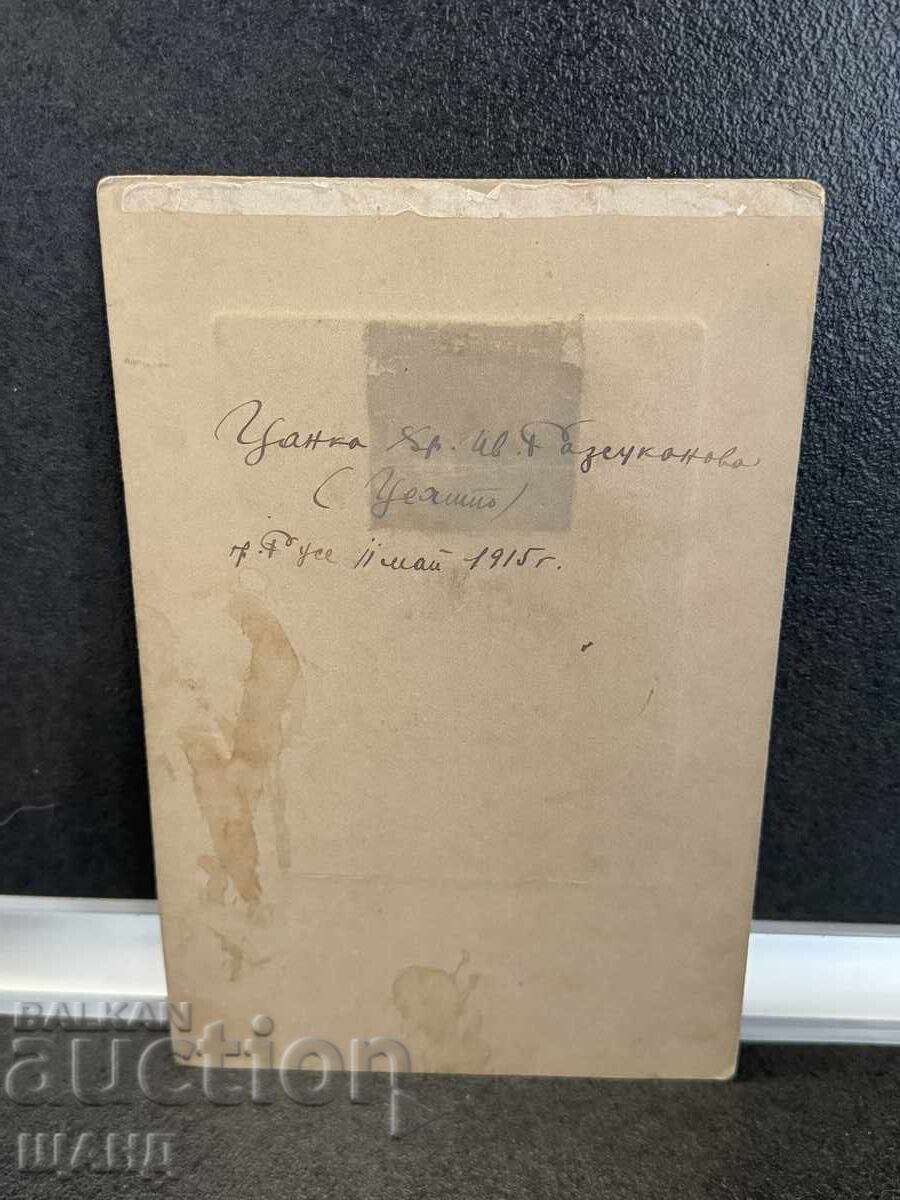 Цанка Хр. Ив. Разсуканова
гр. Русе 11 май 1915 г.
BALKAN
auction
ШАНД